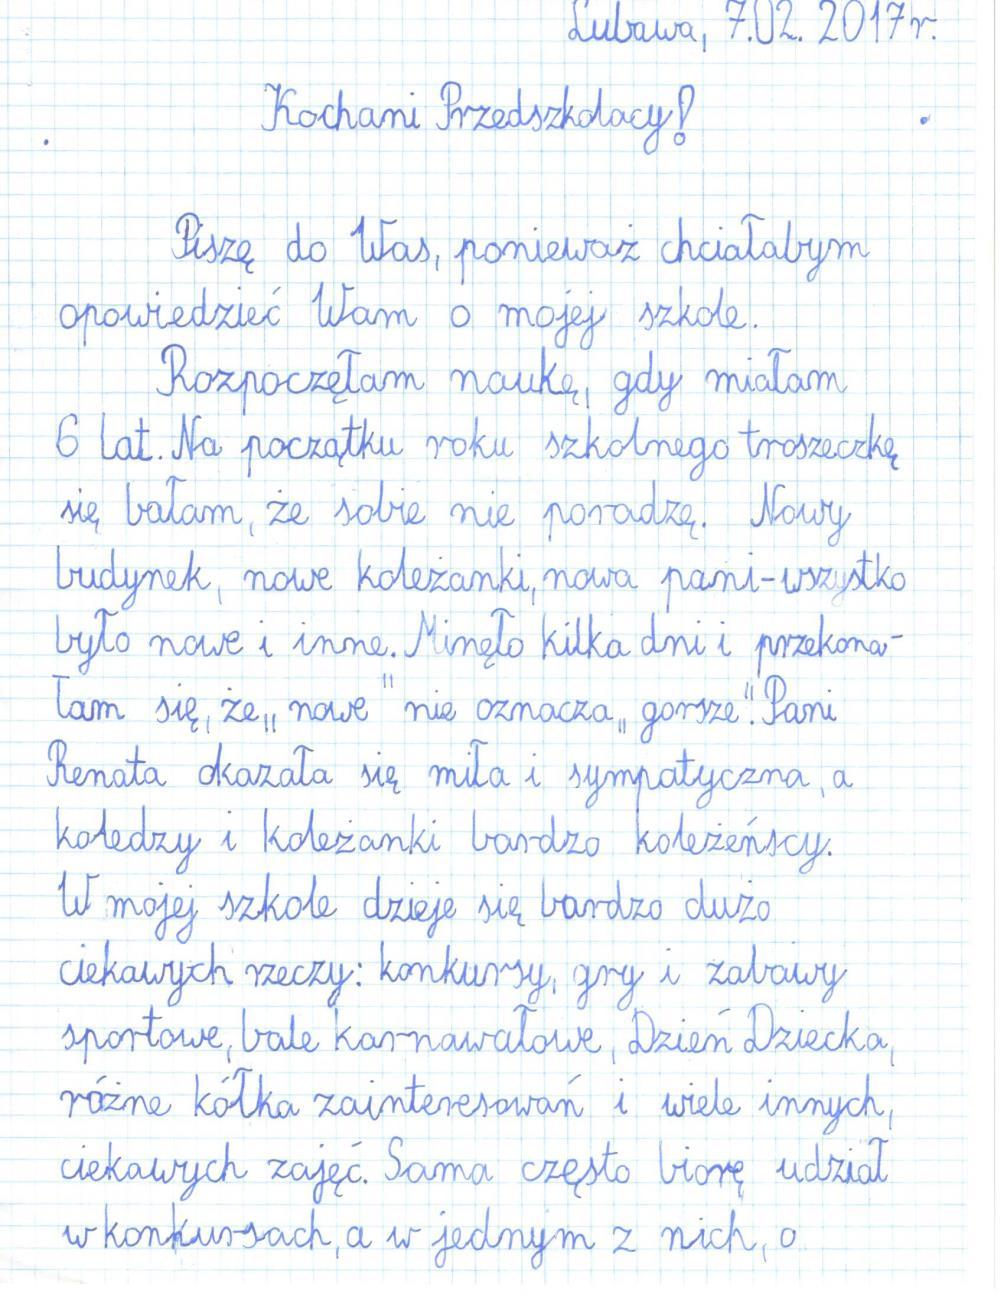 Lubawa, 7.02.2017r.
Kochani Przedszkolacy!
Piszę do Was, ponieważ chciałabym
opowiedzieć Wam o mojej szkole.
Rozpoczęłam naukę, gdy miałam
6 lat. Na początku roku szkolnego troszeczkę
się bałam, że sobie nie poradzę. Nowy
budynek, nowe koleżanki, nowa pani-wszystko
było nowe i inne. Minęło kilka dni i przekona-
łam się, że „nowe" nie oznacza „gorsze". Pani
Renata okazała się miła i sympatyczna, a
koledzy i koleżanki bardzo koleżeńscy.
W mojej szkole dzieje się bardzo dużo
ciekawych rzeczy: konkursy, gry i zabawy
sportowe, bale karnawałowe, Dzień Dziecka,
różne kółka zainteresowań i wiele innych,
ciekawych zajęć. Sama często biorę udział
w konkursach, a w jednym z nich, o